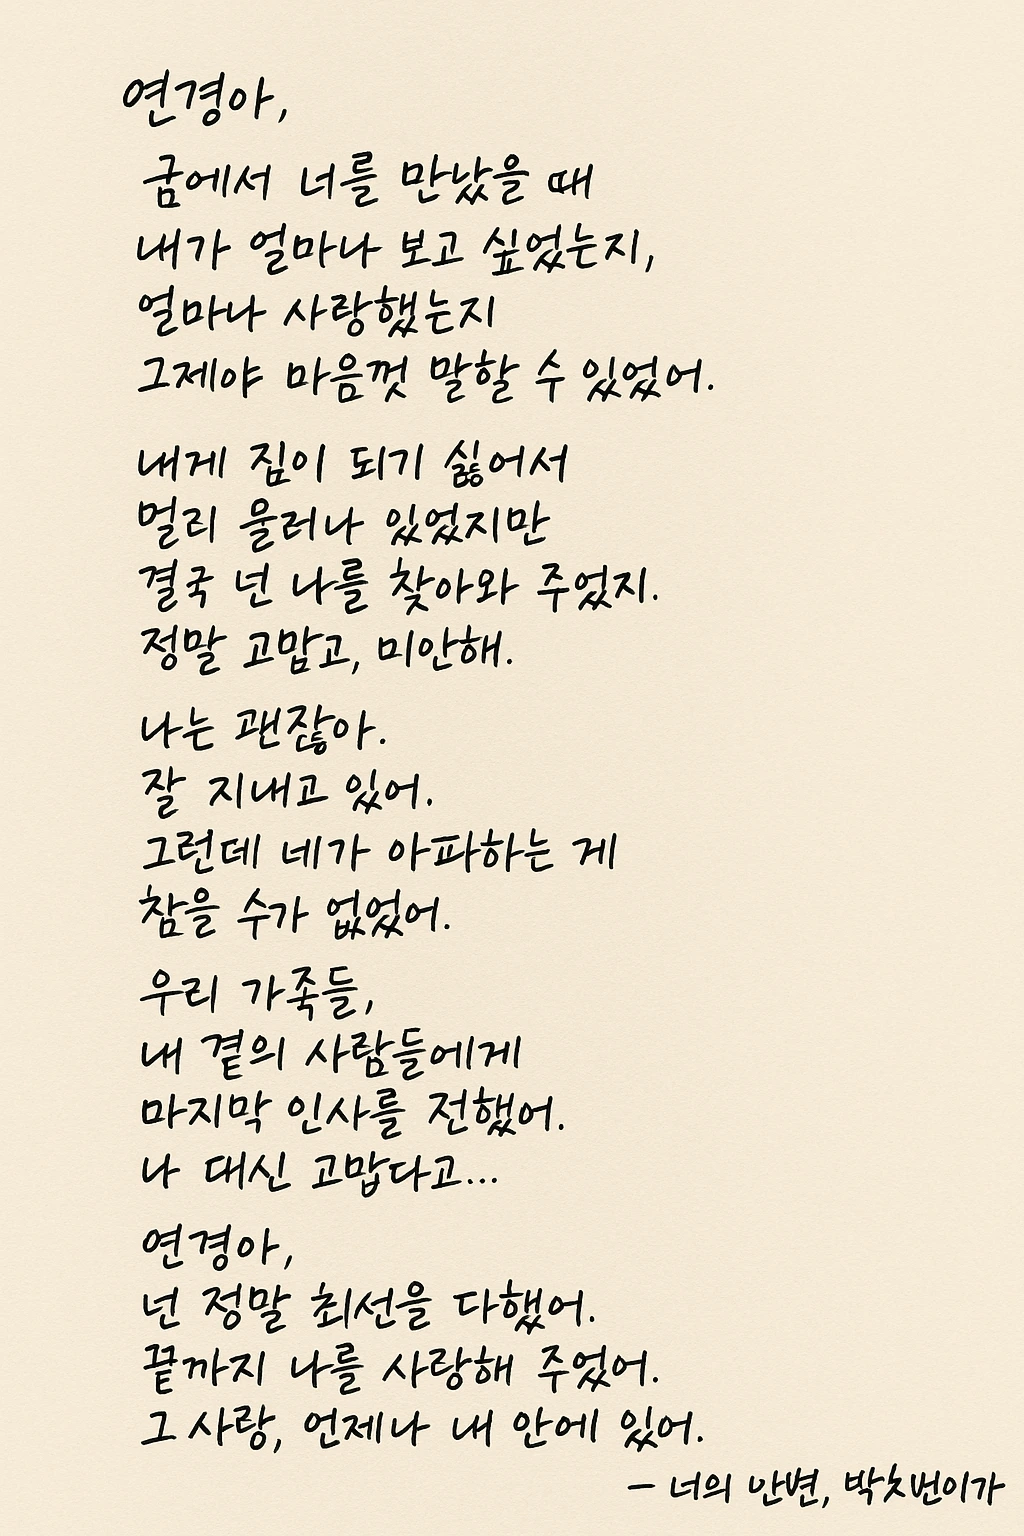 연경아,
굼에서 너를 만났을 때
내가 얼마나 보고 싶었는지,
얼마나 사랑했는지
그제야 마음껏 말할 수 있었어.
내게 짐이 되기 싫어서
멀리 울러나 있었지만
결국 넌 나를 찾아와 주었지.
정말 고맙고, 미안해.
나는 괜잖아.
잘 지내고 있어.
그런데 네가 아파하는 게
참을 수가 없었어.
우리 가족들,
내 곁의 사람들에게
마지막 인사를 전했어.
나 대신 고맙다고...
연경아,
넌 정말 최선을 다했어.
끝까지 나를 사랑해 주었어.
그 사랑, 언제나 내 안에 있어.
– 너의 안변,